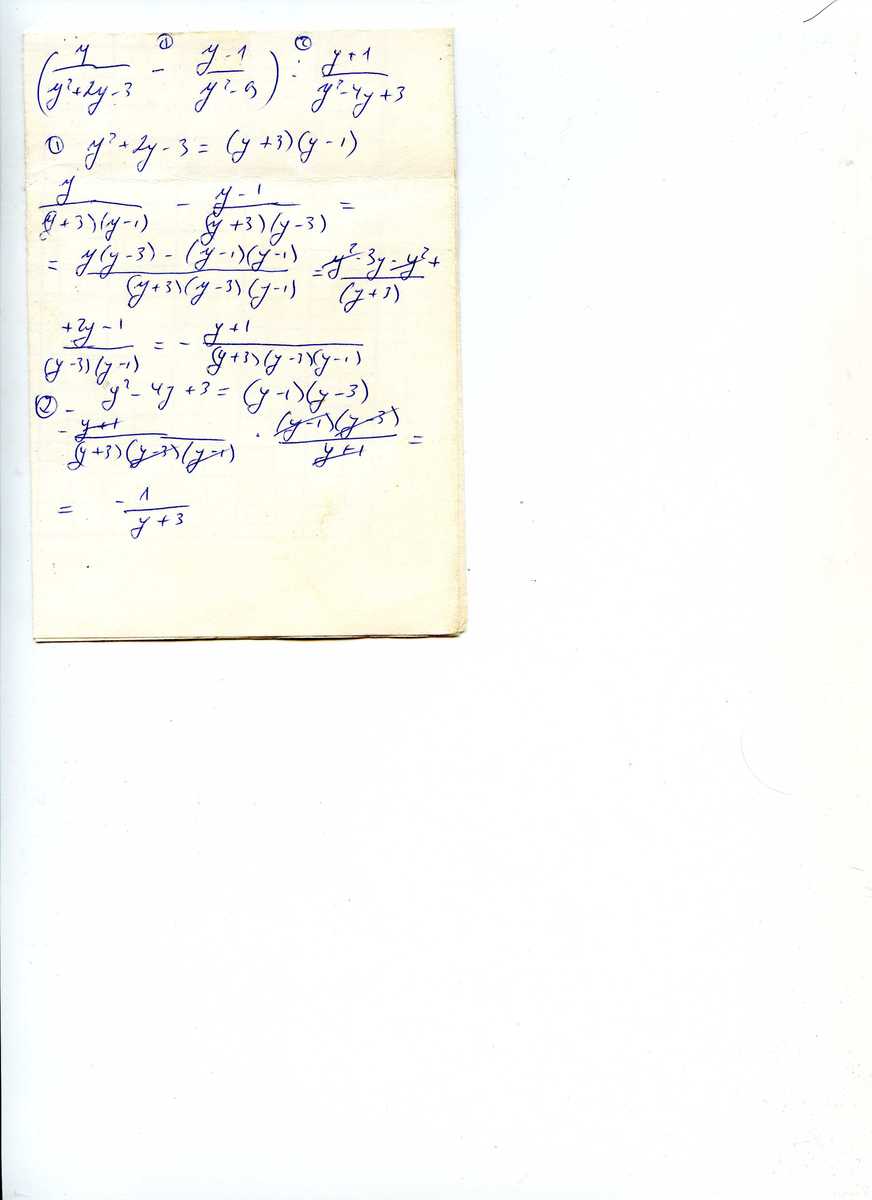 ① ②
(y/(y²+2y-3) - (y-1)/(y²-9)) : (y+1)/(y²-4y+3)
① y²+2y-3 = (y+3)(y-1)
y/((y+3)(y-1)) - (y-1)/((y+3)(y-3)) =
= (y(y-3) - (y-1)(y-1))/((y+3)(y-3)(y-1)) = (y²-3y-y²+)/((y+3))
(+2y-1)/((y-3)(y-1)) = - (y+1)/((y+3)(y-3)(y-1))
② y²-4y+3 = (y-1)(y-3)
- (y+1)/((y+3)(y-3)(y-1)) · ((y-1)(y-3))/(y+1) =
= - 1/(y+3)